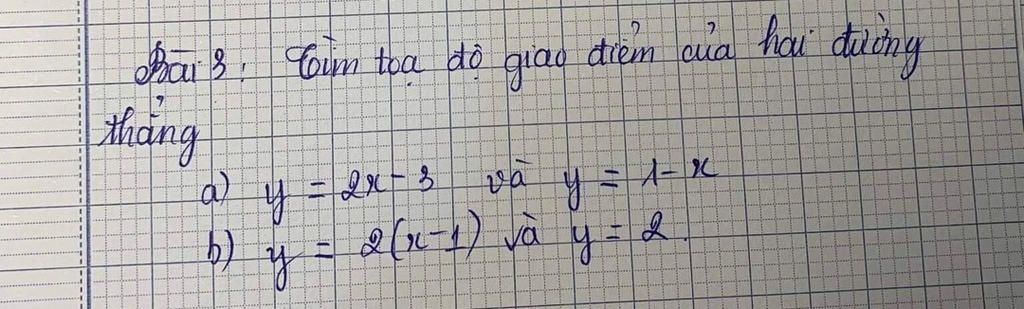 Bài 3: Tìm tọa độ giao điểm của hai đường
thẳng
a) y = 2x - 3 và y = 1 - x
b) y = 2(x-1) và y = 2.